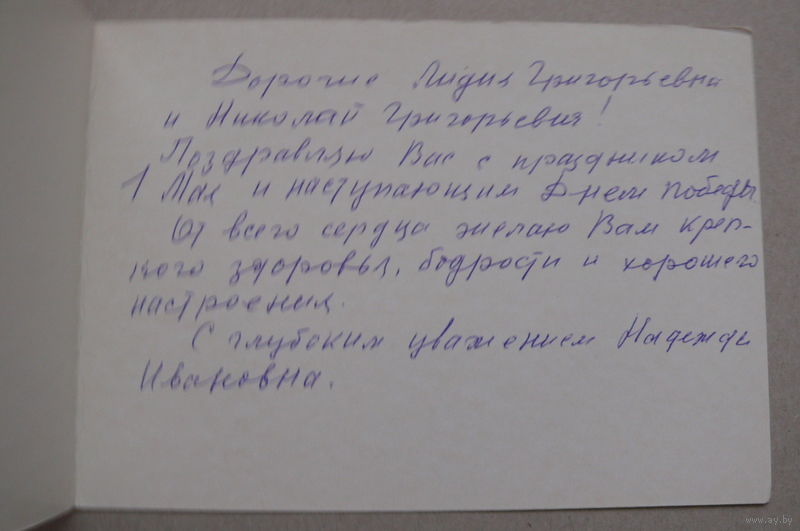 Дорогие Лидия Григорьевна
и Николай Григорьевия!
Поздравляю Вас с праздником
1 Мая и наступающим Днем Победы
От всего сердца желаю Вам креп-
кого здоровья, бодрости и хорошего
настроения.
С глубоким уважением Надежда
Ивановна.
www.ay.by